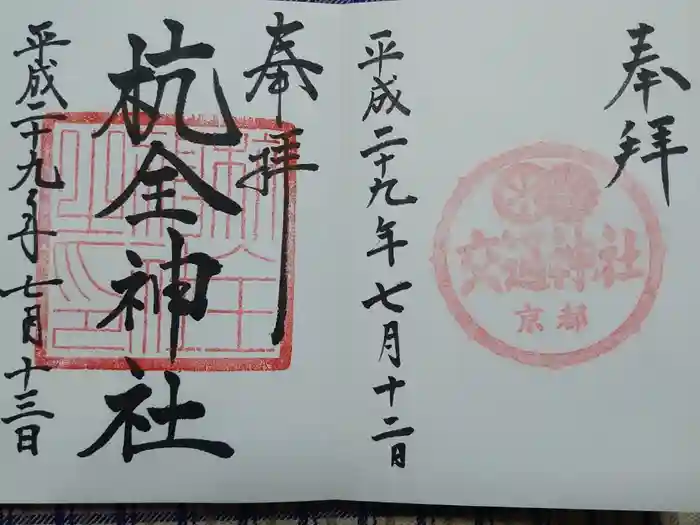 奉拝
交通神社
京都
平成二十九年七月十二日
奉拝
杭全神社
平成二十九年七月十三日